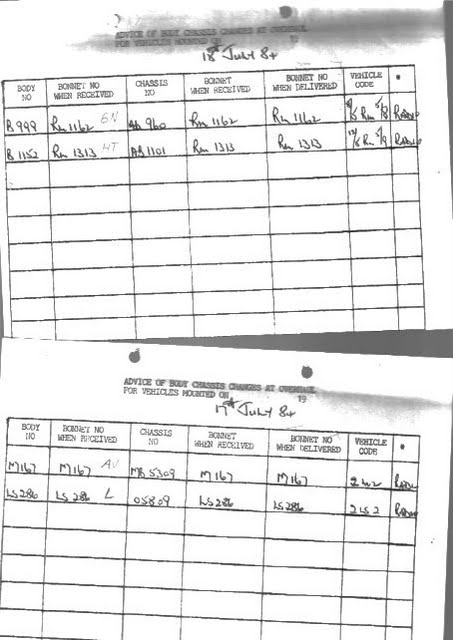 ADVICE OF BODY CHASSIS CHANGES AT OVERHAUL
FOR VEHICLES MOUNTED ON 19
18th July 84
BODY NO BONNET NO WHEN RECEIVED CHASSIS NO BONNET WHEN RECEIVED BONNET NO WHEN DELIVERED VEHICLE CODE *
B 999 Rm 1162 GN 960 Rm 1162 Rm 1162 Rm Radio
B 1152 Rm 1313 HT AR 1101 Rm 1313 Rm 1313 Rm Radio
ADVICE OF BODY CHASSIS CHANGES AT OVERHAUL
FOR VEHICLES MOUNTED ON 19
17th July 84
BODY NO BONNET NO WHEN RECEIVED CHASSIS NO BONNET WHEN RECEIVED BONNET NO WHEN DELIVERED VEHICLE CODE *
M167 M167 AV MB 5309 M167 M167 Radio
LS 286 LS 286 L 05809 LS 286 LS 286 2 LS 2 Radio